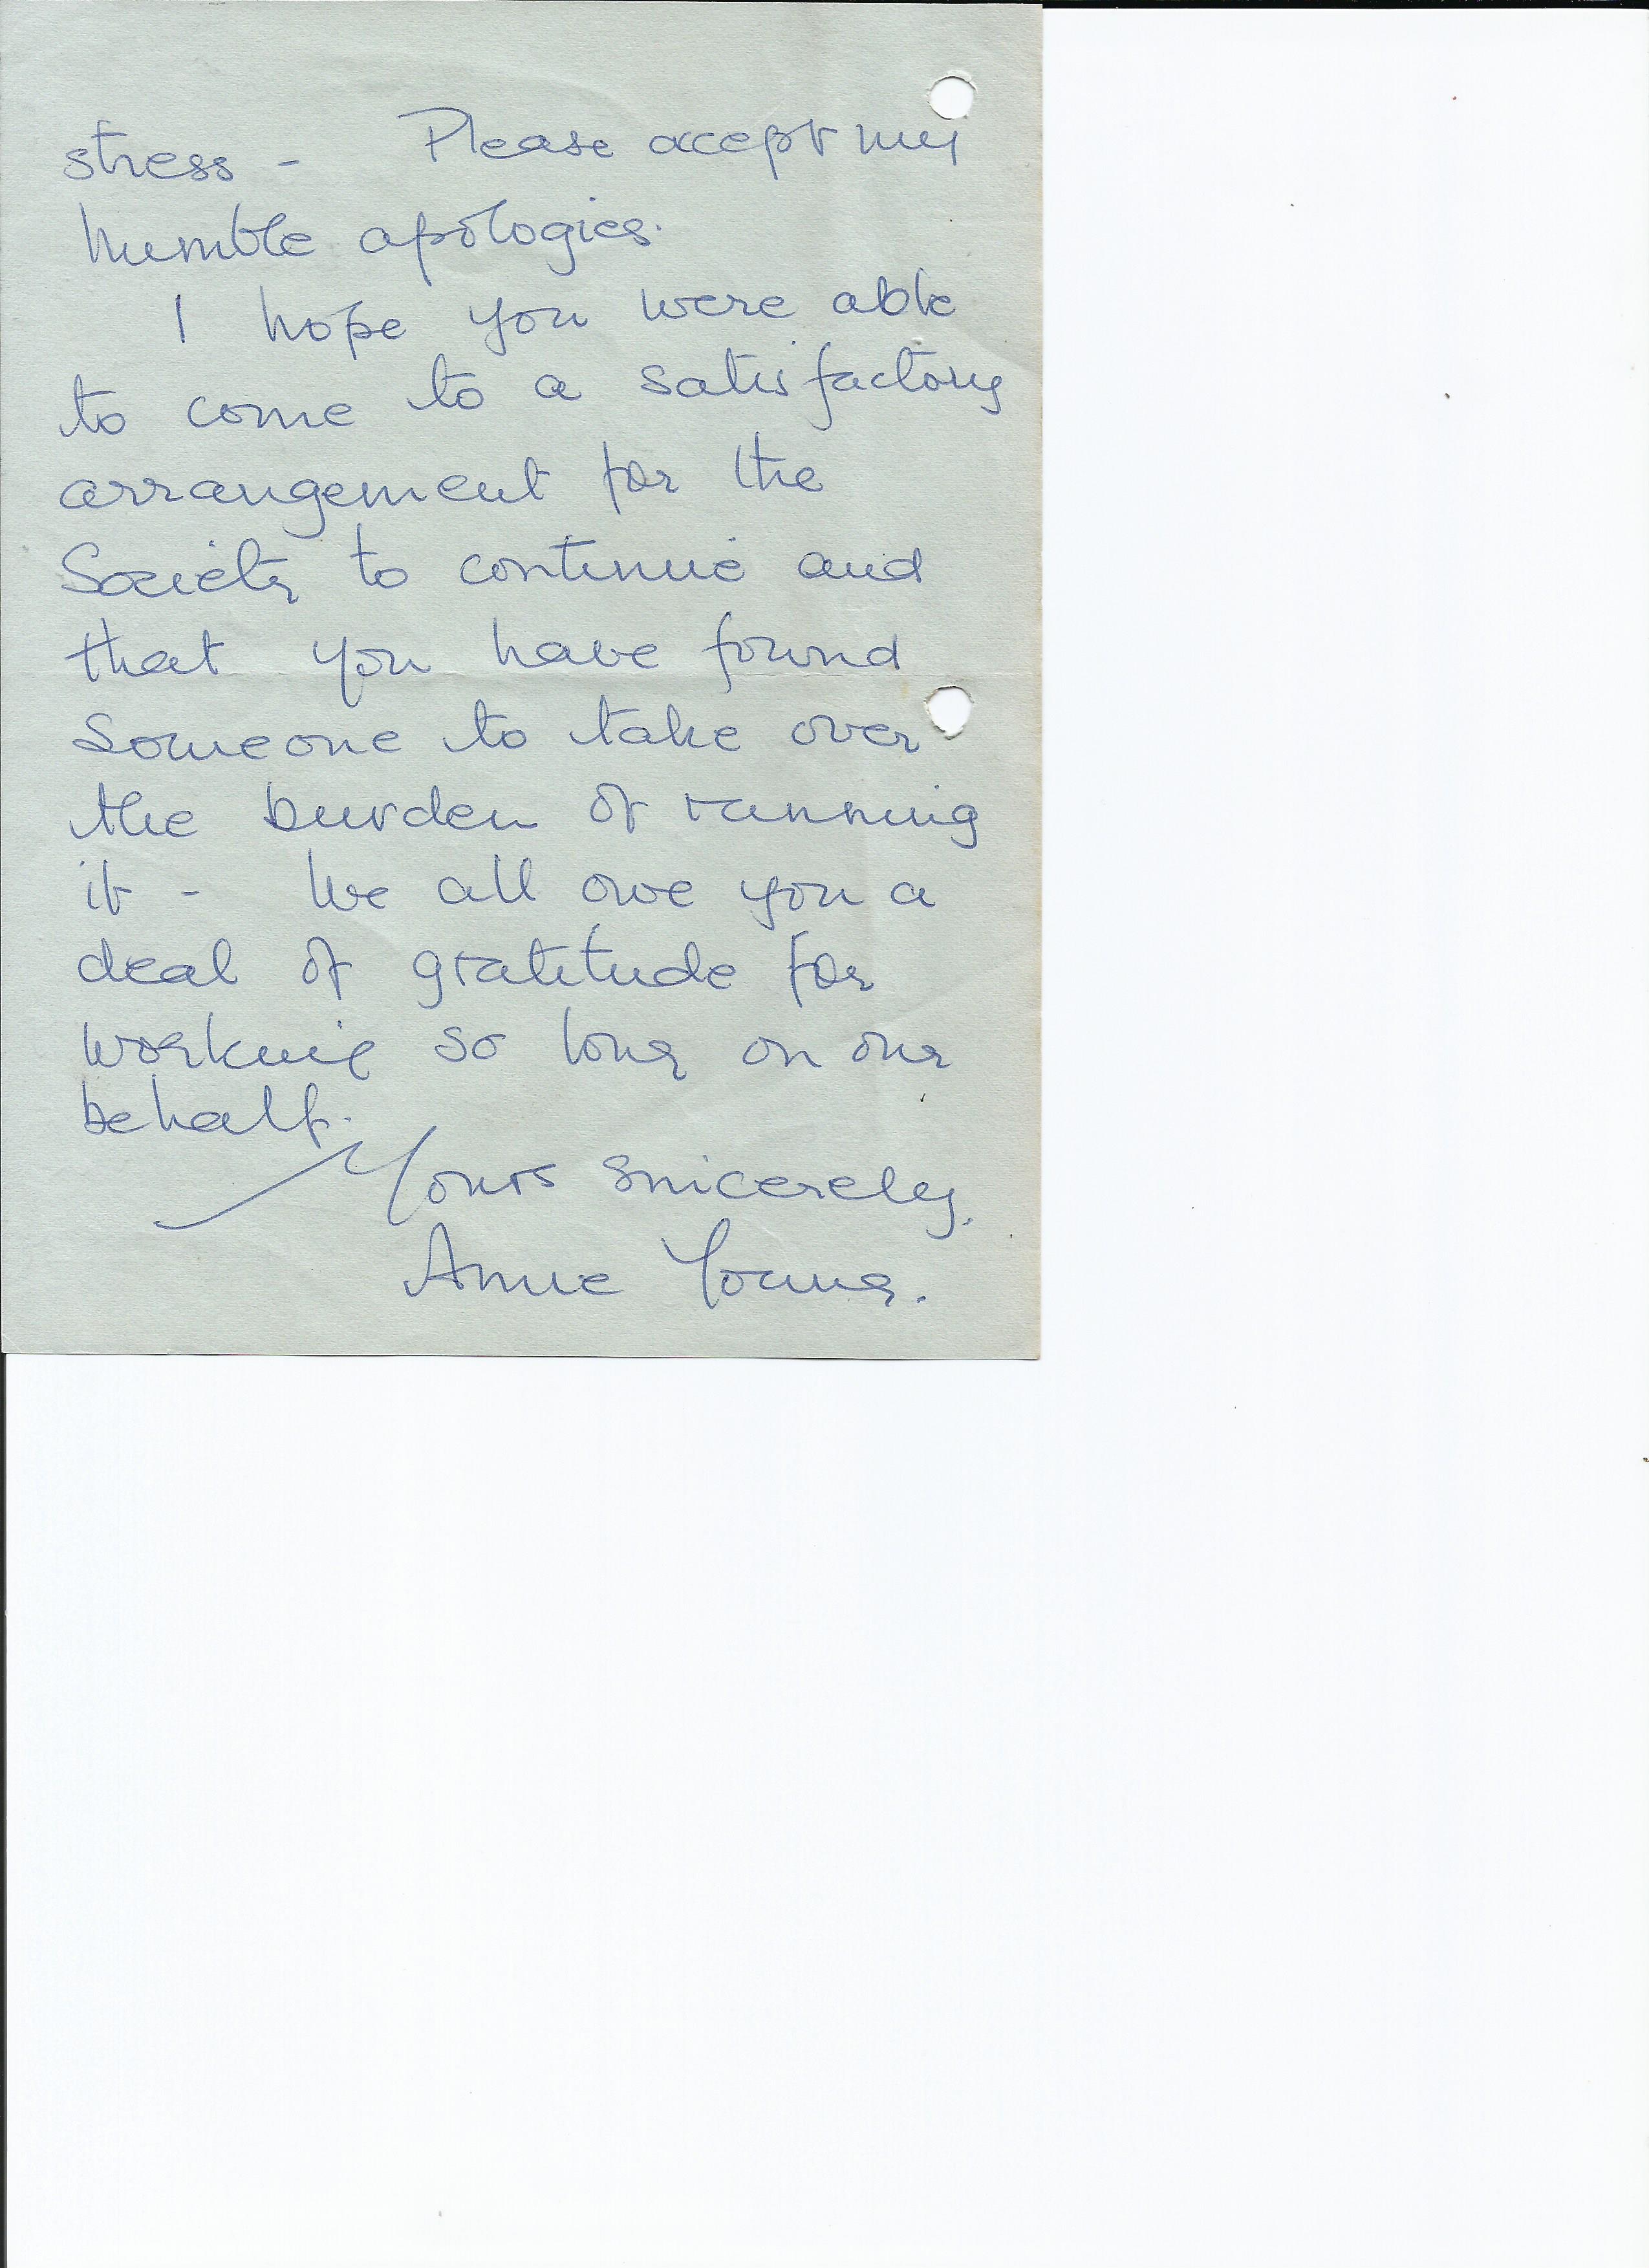 stress - Please accept my
humble apologies.
I hope you were able
to come to a satisfactory
arrangement for the
Society to continue and
that you have found
someone to take over
the burden of running
it - We all owe you a
deal of gratitude for
working so long on our
behalf.
Yours sincerely,
Anne Young.